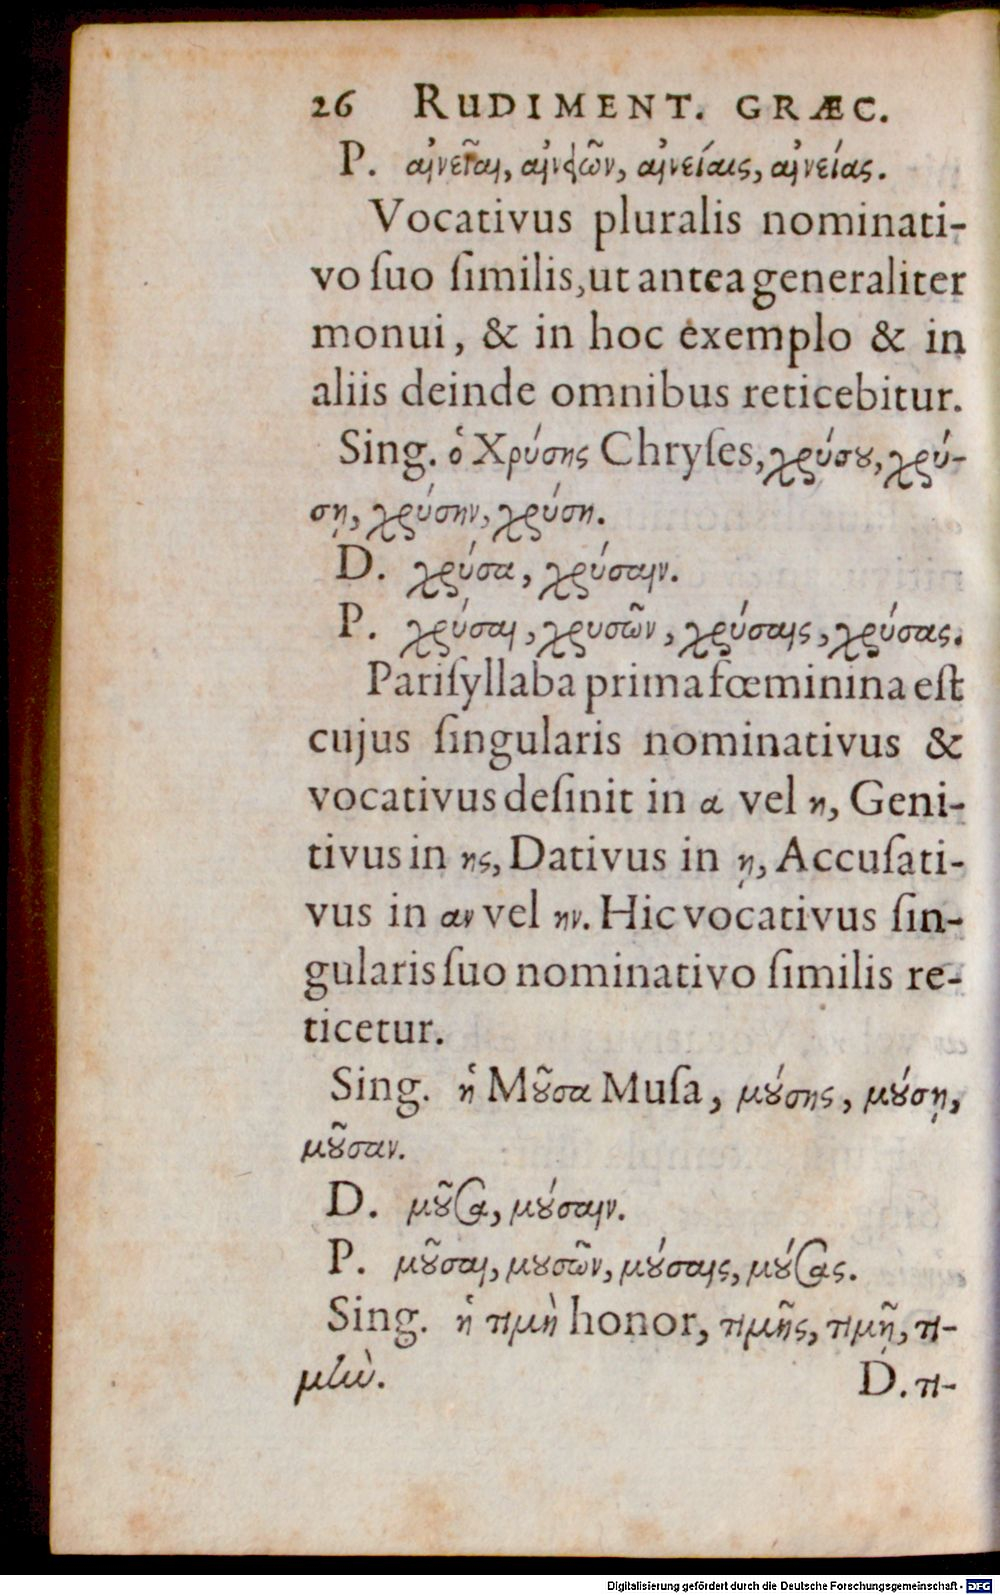 26 RUDIMENT. GRÆC.
P. αἰνεῖαι, αἰνειῶν, αἰνείαις, αἰνείας.
Vocativus pluralis nominati-
vo ſuo ſimilis, ut antea generaliter
monui, & in hoc exemplo & in
aliis deinde omnibus reticebitur.
Sing. ὁ Χρύσης Chryſes, χρύσȣ, χρύ-
σῃ, χρύσην, χρύση.
D. χρύσα, χρύσαιν.
P. χρύσαι, χρυσῶν, χρύσαις, χρύσας.
Pariſyllaba prima fœminina eſt
cujus ſingularis nominativus &
vocativus deſinit in α vel η, Geni-
tivus in ης, Dativus in ῃ, Accuſati-
vus in αν vel ην. Hic vocativus ſin-
gularis ſuo nominativo ſimilis re-
ticetur.
Sing. ἡ Μȣ͂σα Muſa, μȣ́σης, μȣ́σῃ,
μȣ͂σαν.
D. μȣ͂σα, μȣ́σαιν.
P. μȣ͂σαι, μȣσῶν, μȣ́σαις, μȣ́σας.
Sing. ἡ τιμὴ honor, τιμῆς, τιμῇ, τι-
μὴν.
D. τι-
Digitalisierung gefördert durch die Deutsche Forschungsgemeinschaft - DFG